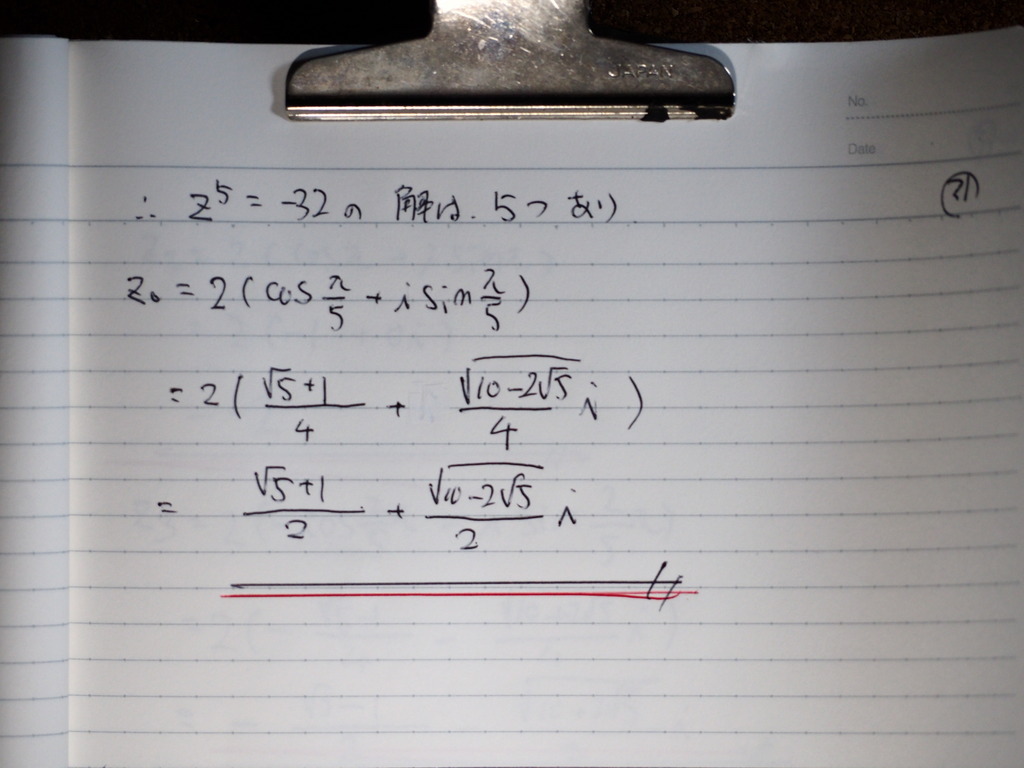 JAPAN
No.
Date
(21)
∴ z⁵ = -32 の 解は、5つ あり
z₀ = 2 ( cos π/5 + i sin π/5 )
= 2 ( (√5+1)/4 + √(10-2√5)/4 i )
= (√5+1)/2 + √(10-2√5)/2 i